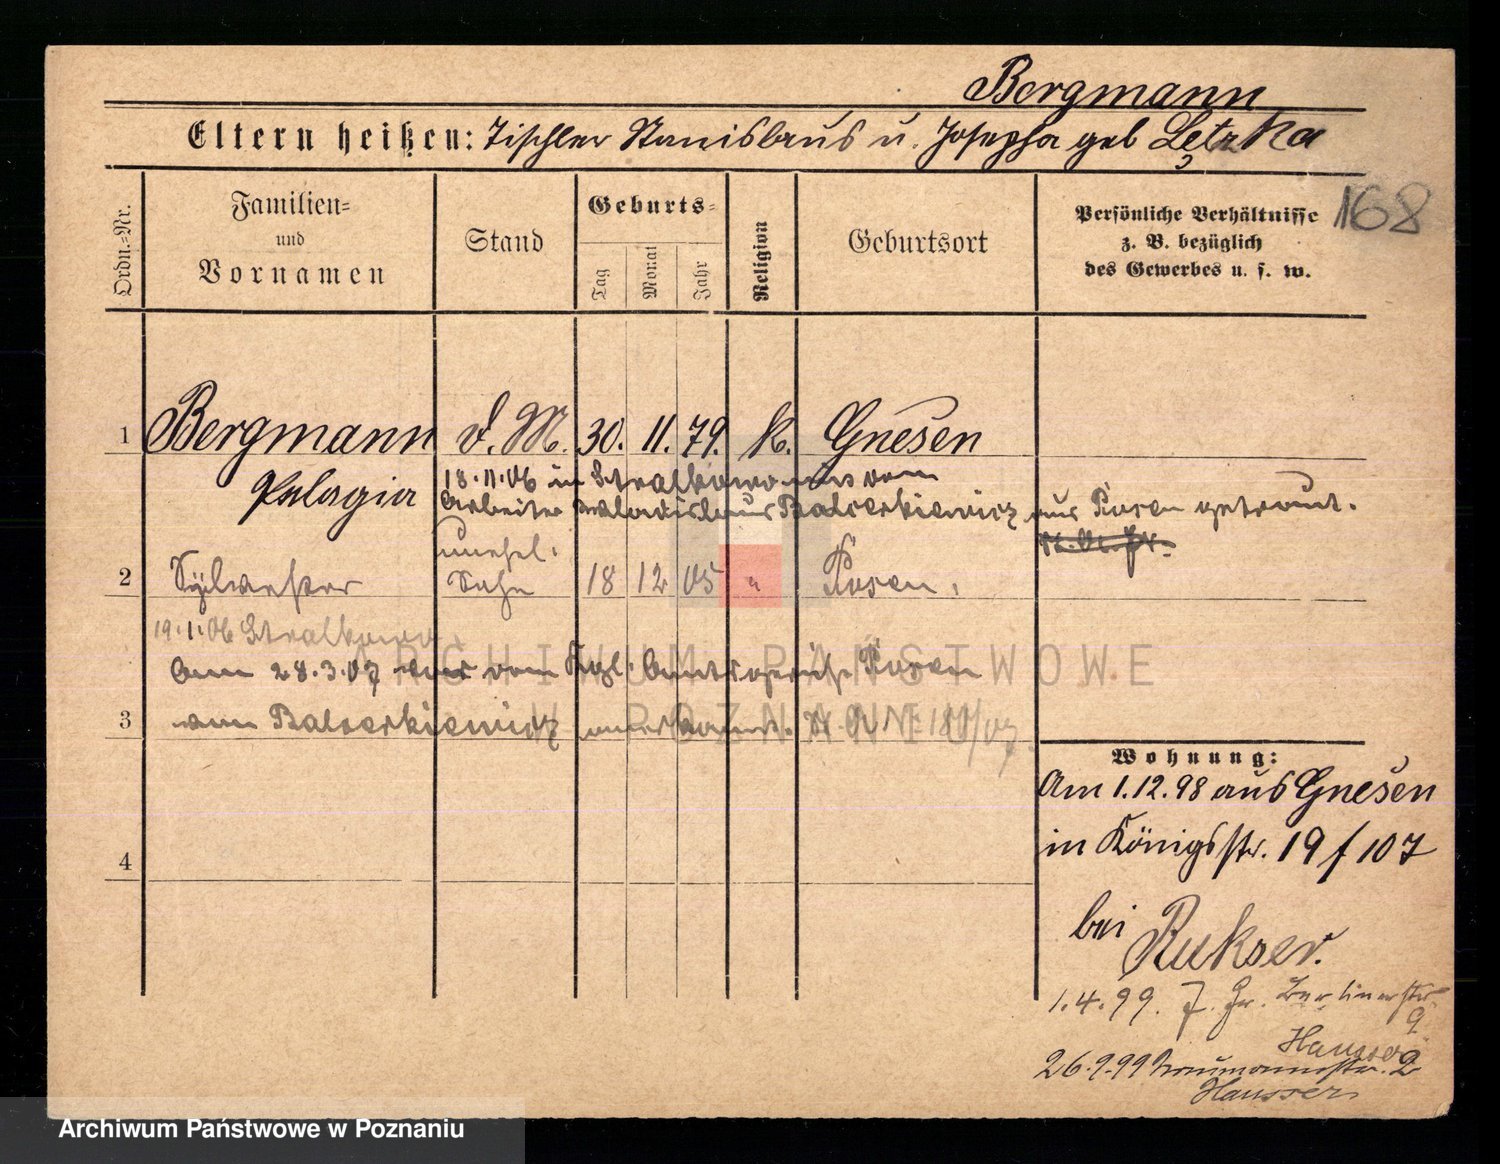 Bergmann
Eltern heißen: Tischler Stanislaus u. Josepha geb Lętzka
168
Ordn.-Nr.
Familien-
und
Vornamen
Stand
Geburts-
Tag
Monat
Jahr
Religion
Geburtsort
Persönliche Verhältnisse
z. B. bezüglich
des Gewerbes u. s. w.
1 Bergmann d. M. 30. 11. 79. K. Gnesen
Pelagia
18.11.06 in Stralkowo mit dem
Arbeiter Wladislaus Balcerkiewicz aus Posen getraut.
unehel.
2 Sylvester Sohn 18 12 05 " Posen.
19.11.06 Stralkowo
Am 28.3.07 vom Kgl. Amtsgericht Posen
3 vom Balcerkiewicz anerkannt. 180/07.
4
Wohnung:
Am 1.12.98 aus Gnesen
in Königsstr. 19 f 107
bei Rukser.
1.4.99. 7. Gr. Berlinerstr.
9
Hausser
26.9.99 Naumannstr. 2
Hausser
ARCHIWUM PAŃSTWOWE
W POZNANIU
Archiwum Państwowe w Poznaniu